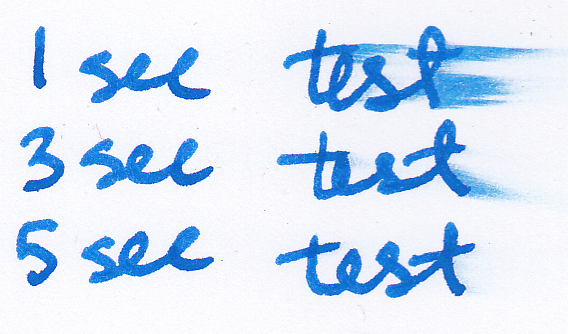 1 sec test
3 sec test
5 sec test